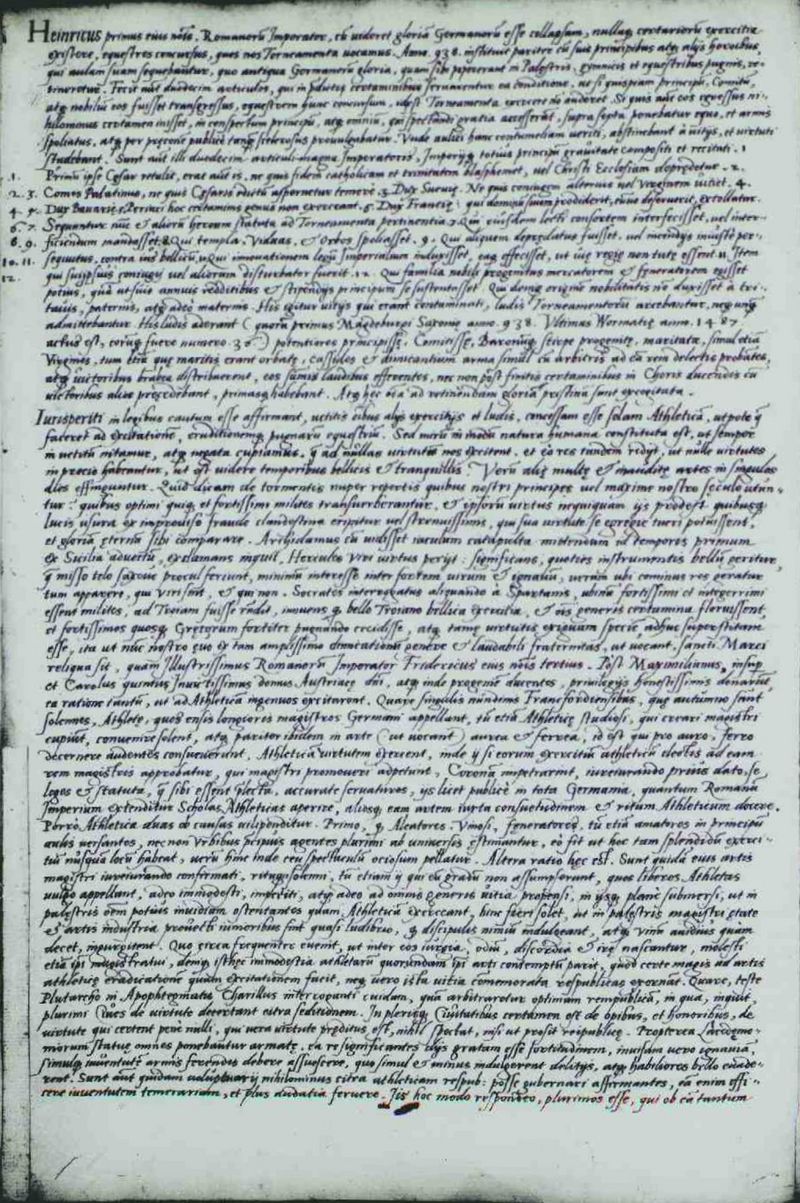 Heinricus primus eius nõis. Romanorũ Imporator, cũ uideret gloriã Germanorũ esse collapsam, nullaq certaminũ exercitia
existere, equestres concursus, quos nos Torneamenta vocamus. Anno. 938. instituit pariter cũ suis principibus atq alijs heroibus
qui aulam suam sequebantur, quo antiqua Germanorũ gloria, quam sibi pepererant in Palestris, gymnicis et equestribus pugnis, re-
tineretur. Fecit aũt duodecim articulos, qui in pdictis certaminibus seruarentur ea conditione, ut si quispiam principũ, Comitũ,
atq nobiliũ eos fuisset transgressus, equestrem hunc concursum, idest Torneamenta exercere nõ auderet. Si quis aũt eos egressus ni-
hilominus certamen inisset, in conspectum principũ, atq omniũ, qui spectandi gratia accesserãt, supra septa ponebatur equo, et armis
spoliatus, atq per preconē publice tanq scelerosus prouulgabatur. Vnde aulici hanc contumeliam ueriti, abstinebant a uitijs, et uirtuti
studebant. Sunt aũt illi duodecim articuli magna Imperatoris, Imperijq totius principũ grauitate compositi et recitati. 1
.1. Primũ ipse Cęsar retulit, erat aũt is, ne quis fidem catholicam et trinitatem blasphemet, vel Christi Ecclesiam depredetur. 2.
2. 3. Comes Palatinus, ne quis Cęsaris edictũ aspernetur temere. 3. Dux Sueuię. Ne quis coniugem alterius uel virginem uitiet. 4.
4. 5. Dux Bauarię. Periuri hoc certaminis genus non exerceant. 5. Dux Francię: qui dominum suum prodiderit, eumue deseruerit, extollatur.
6. 7. Sequuntur nũc et aliorũ heroum statuta ad Torneamenta pertinentia. 7. Qui eiusdem lecti consortem interfecisset, uel inter-
8. 9. ficiendum mandasset. 8. Qui templa, Viduas, et Orbos spoliasset. 9. Qui aliquem depredatus fuisset, uel incendijs iniuste per-
10. 11. sequutus, contra ius bellicũ. Qui innouationem legũ Imperialium induxisset, eaq effecisset, ut uię regię non tutę essent. 11. Item
12. qui suijpsius coniugij uel aliorum disturbator fuerit. 12. Qui familia nobili progenitus mercatorem et feneratorem egisset
potius, quã ut suis annuis redditibus et stipendijs principum se sustentasset. Qui deniq origine nobilitatis nõ duxisset à tri-
tauis, paternis, atq adeo maternis. His igitur uitijs qui erant contaminati, ludis Torneamentorũ arcebantur, neq unq
admittebantur. His ludis aderant (quorũ primus Magdeburgi Saxonię anno. 938. Vltimus Wormatię anno. 1487
actus est, eorũq fuere numero. 36) potentiores principissę, Comitissę, Baronũq stirpe progenitę, maritatę, simul etiã
Virgines, tum etiã quę maritis erant orbatę, cassides et dimicantium arma simul cũ arbitris ad eã rem delectis probãtes,
atq uictoribus brabea distribuerent, eos sũmis laudibus efferentes, nec non post finitis certaminibus in Choris ducendis cũ
uictoribus alios precedebant, primasq habebant. Atq hec oĩa ad retinendam gloriã pristinã sunt excogitata.
Iurisperiti in legibus cautum esse affirmant, uetitis cibus alijs exercitijs et ludis, concessam esse solam Athleticã, utpote q
faceret ad excitationẽ, eruditionemq pugnarũ equestriũ. Sed mirũ in modũ natura humana constituta est, ut semper
in uetitũ nitamur, atq negata cupiamus, q ad nullas uirtutũ nos excitent. et eò res tandem redijt, ut nullę virtutes
in precio habeantur, ut est videre temporibus bellicis et tranquillis. Verũ alię multę et inauditę artes in singulos
dies effinguntur. Quid dicam de tormentis nuper repertis quibus nostri principes vel maxime nostro seculo utun-
tur: quibus optimi quiq et fortissimi milites transuerberantur, et ipsorũ virtus nequiquam ijs prodest quibusq
lucis usura ex improuiso fraude clandestina eripitur uel strenuissimis, qui sua virtute se egregie tueri potuissent,
et gloriã eternã sibi comparare. Archidamus cũ uidisset iaculum catapulta mittendum id temporis primum
ex Sicilia aduectũ, exclamans inquit, Hercules viri virtus perijt: significans, quoties instrumentis bellũ geritur,
q misso telo saxoue procul feriunt, minimũ interesse inter fortem uirum et ignauũ, uerum ubi cominus res geratur
tum apparere, qui viri sint, et qui non. Socrates interrogatus aliquando à Spartanis, ubinã fortissimi et integerrimi
essent milites, ad Troiam fuisse rñdit, innuens q bello Troiano bellica exercitia, et oĩs generis certamina floruissent,
et fortissimos quosq Gręcorum fortiter pugnando cecidisse, atq tamẽ virtutis exiguam speciẽ adhuc superstitem
esse, ita ut nũc nostro quo ex tam amplissimo dimicationũ genere et laudabili fraternitas, ut uocant, sancti Marci
reliqua sit, quam Illustrissimus Romanorũ Imporator Fridericus eius nõis tertius. Post Maximilianus, insup
et Carolus quintus Inuictissimus domus Austriacę dñi, atq inde progenię ducentes, priuilegijs honestissimis donarũt
ea ratione tantũ, ut ad Athleticã ingenuos excitarent. Quare singulis nundinis Francfordiensibus, quę autumno sunt
solennes, Athletę, quos ensis longioris magistros Germani appellant, tũ etiã Athleticę studiosi, qui creari magistri
cupiũt, conuenire solent, atq pariter ibidem in arte (ut uocant) aurea et ferrea, id est qui pro auro, ferro
decernere audentes consueuerunt, Athleticã virtutem exercent, inde q si eorum exercitiũ athleticũ electis ad eam
rem magistris approbatur, qui magistri promoueri adpetunt, Coronã impetrarint, iureiurando prius dato, se
leges et statuta, q sibi essent plecta, accurate seruaturos, ijs licet publice in tota Germania, quantum Romanũ
Imperium extenditur Scholas Athleticas aperire, aliosq eam artem iuxta consuetudinem et ritum Athleticum docere.
Porrò Athletica duas ob causas uilipenditur. Primo, q Aleatores. Vinosi, feneratores, tũ etiã amatores in principũ
aulis versantes, nec non Vrbibus pcipuis agentes plurimi ab uniuersis estimantur, eò fit ut hoc tam splendidũ exerci-
tiũ nusquã locũ habeat, uerũ hinc inde ceu spectaculũ ociosum pellatur. Altera ratio hęc est. Sunt quidã eius artis
magistri iureiurando confirmati, rituq solenni, tũ etiam ij qui eũ gradũ non assumpserunt, quos liberos Athletas
vulgo appellant, adeo immodesti, imperiti, atq adeo ad omnis generis uitia propensi, in ijsq planè submersi, ut in
palestris oẽm potius inuidiam ostentantes quam Athleticã exerceant, hinc fieri solet, ut in palestris magistri etate
et artis industria prouecti minoribus sint quasi ludibrio, q discipulis nimiũ indulgeant, atq vinũ auidius quam
decet, ingurgitent. Quo circa frequenter euenit, ut inter eos iurgia, odiũ, discordia et irę nascantur, molesti
etiã ipsi magistratui, deniq isthęc immodestia athletarũ quorundam ipsi arti contemptũ parit, quòd certe magis ad artis
athleticę eradicationẽ quàm excitationem facit, neq vero ista uitia cõmemorata respublicas exornãt. Quare, teste
Plutarcho in Apophtegmatis Charillus interroganti cuidam, quã arbitraretur optimam rempublicã, in qua, inquit,
plurimi Ciues de virtute decertant citra seditionem. In plerisq Ciuitatibus certamen est de opibus, et honoribus, de
virtute qui certent penè nulli, qui uera virtute pręditus est, nihil spectat, nisi ut prosit reipublicę. Propterea Lacedęmo-
niorum statuę omnes ponebantur armatę, ea re significantes dijs gratam esse fortitudinem, inuisam vero ignauiã,
simulq iuuentutẽ armis ferendis debere assuescere, quo simul et minus indulgerent delitijs, atq habiliores bello euade-
rent. Sunt aũt quidam voluptuarij nihilominus citra athleticam respub: posse gubernari affirmantes, eã enim effi-
cere iuuentutem temerariam, et plus audatia feruere. Ijs hoc modo respondeo, plurimos esse, qui ob eã tantum